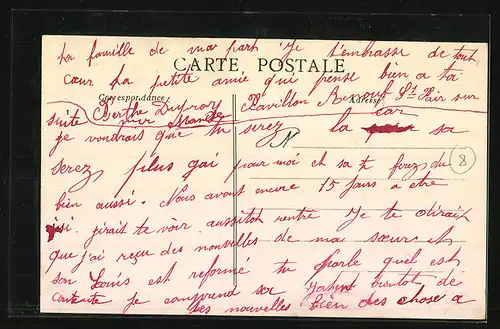 ta famille de ma part Je t'embrasse de tout
CARTE POSTALE
cœur ta petite amie qui pense bien a toi
Correspondance
Adresse
suite Berthe Pavillon St Pair sur
mer Manche car
je voudrais que tu serez la sa
serez plus gai pour moi et sa te
bien aussi. Nous avont encore 15 jours a etre
isi. jirait te voir aussitot rentré Je te dirait
que j'ai reçu des nouvelles de ma sœur et
son Louis est reformé tu parle quel est
contente Je comprend sa bientot de
tes nouvelles bien des chose a
N
8